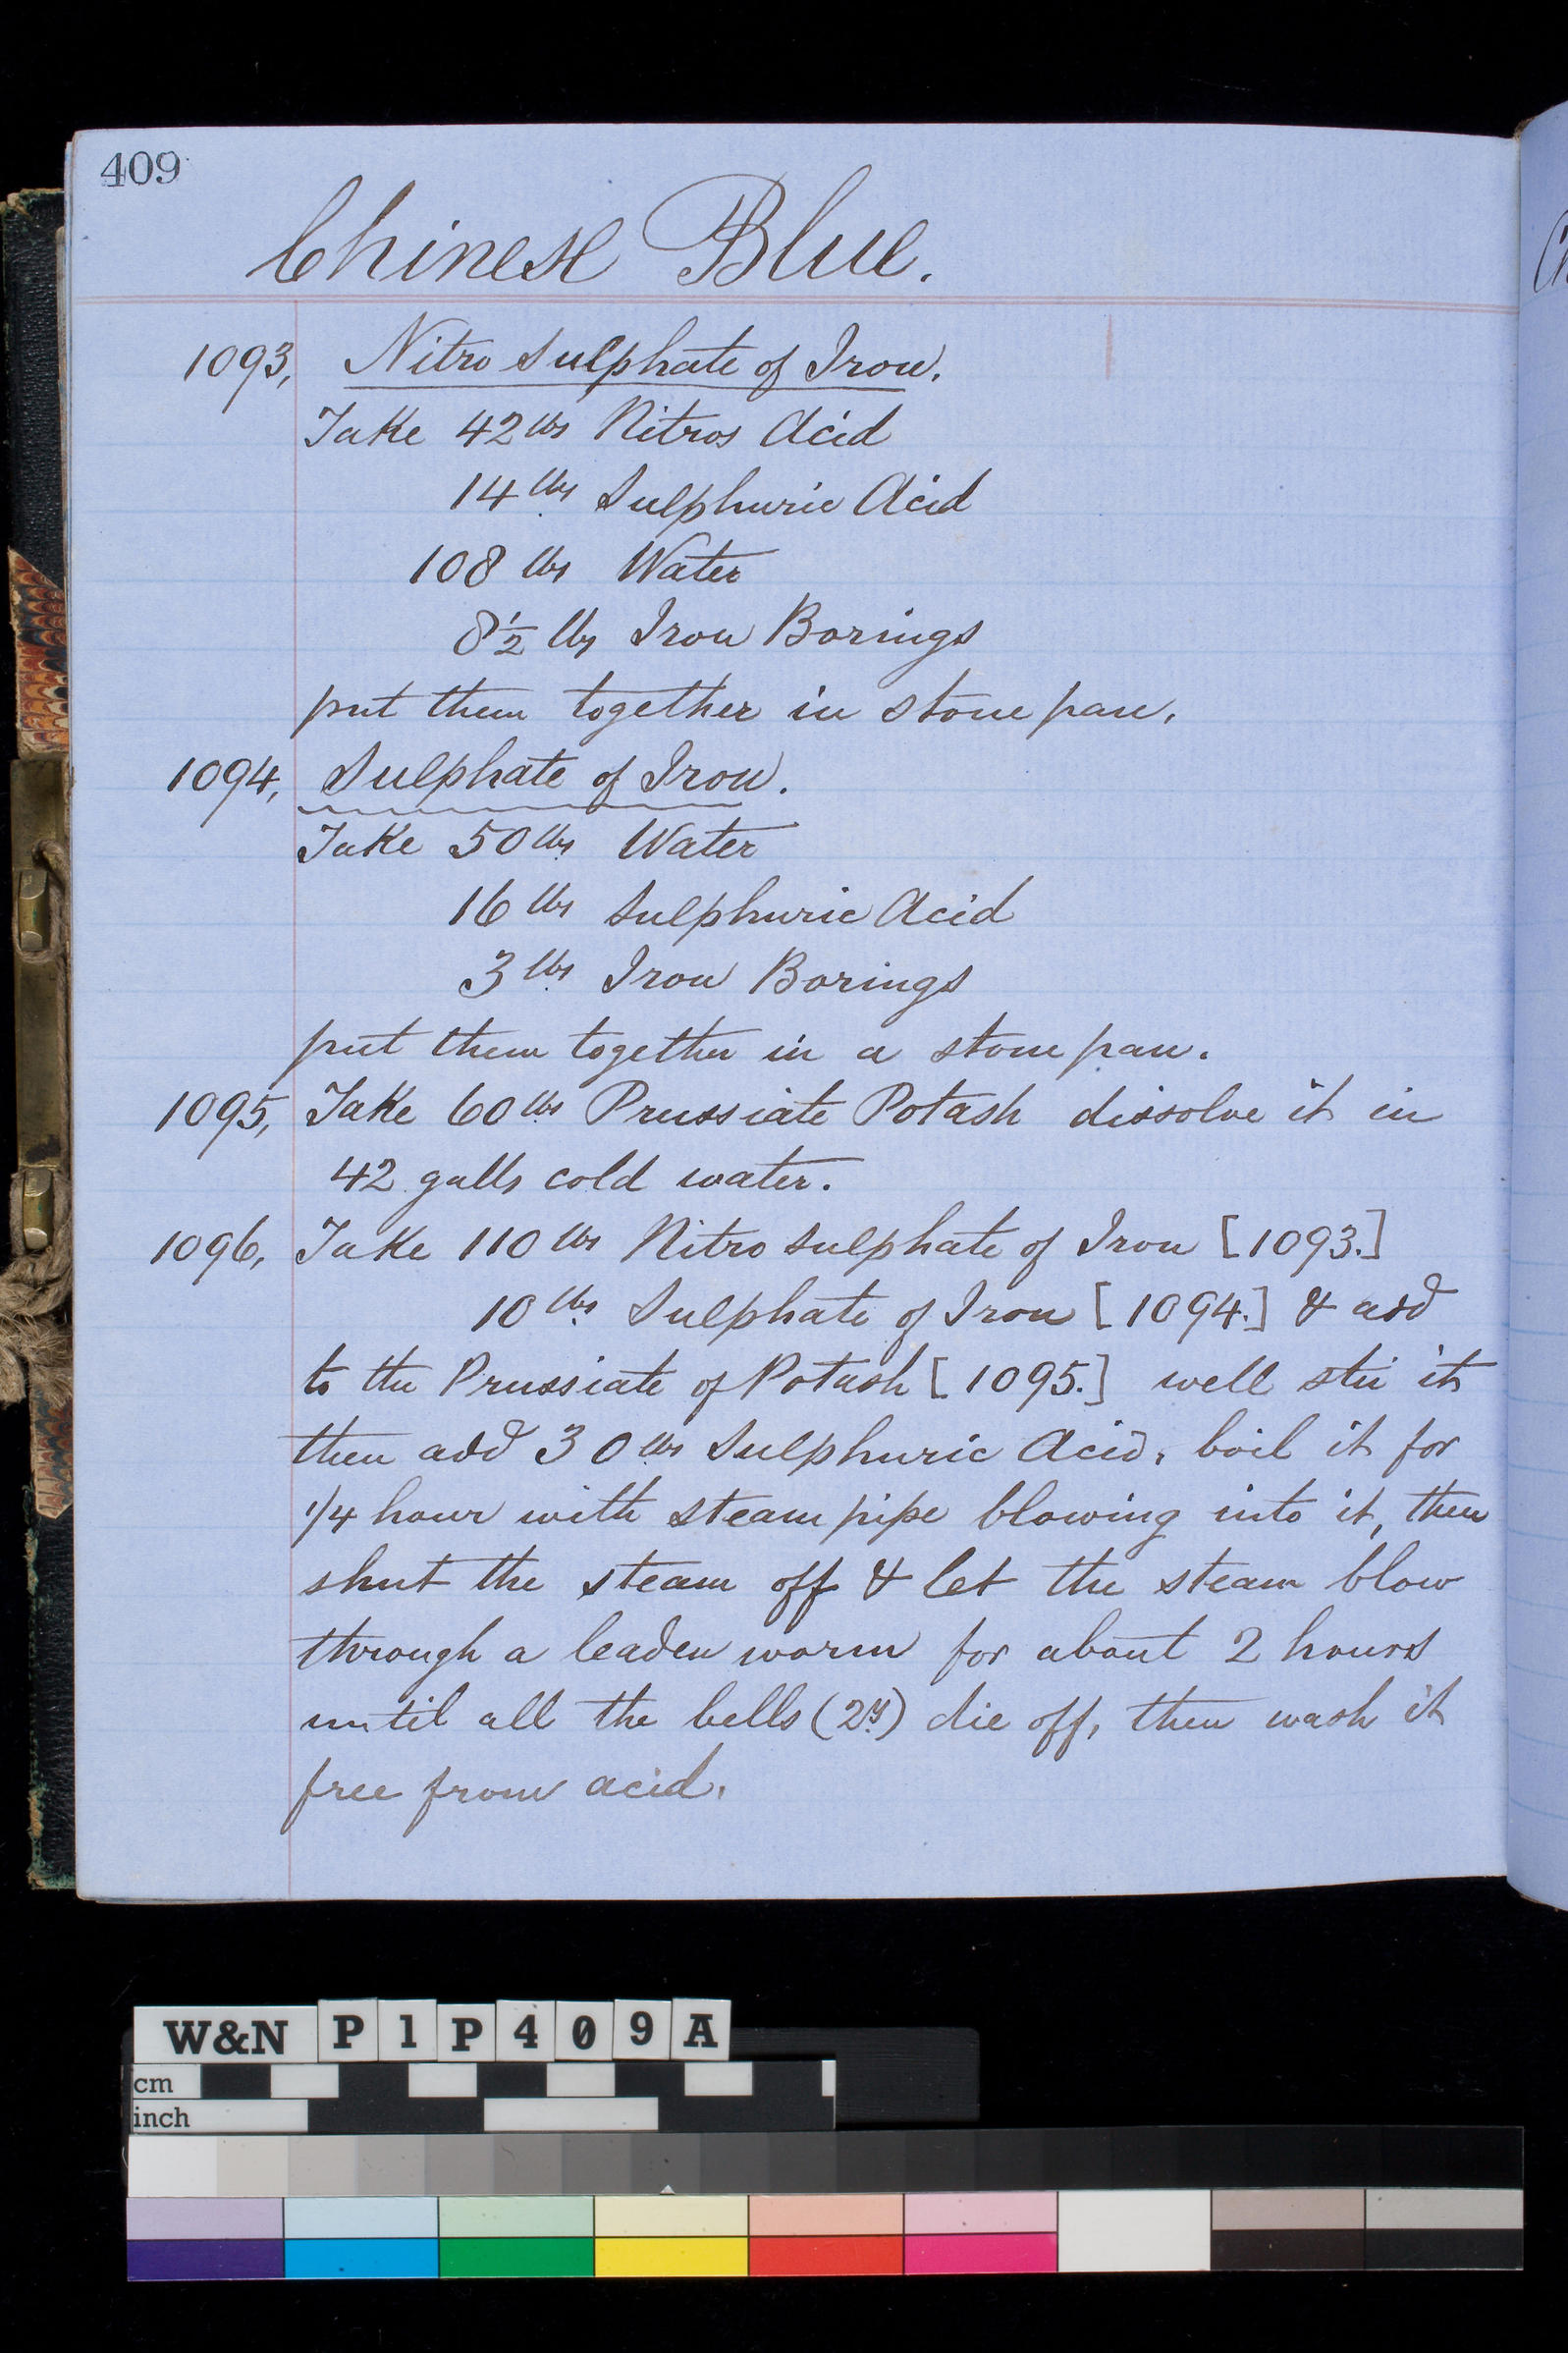 409
Chinese Blue.
1093, Nitro Sulphate of Iron.
Take 42 lbs Nitros Acid
14 lbs Sulphuric Acid
108 lbs Water
8 1/2 lbs Iron Borings
put them together in stone pan.
1094, Sulphate of Iron.
Take 50 lbs Water
16 lbs Sulphuric Acid
3 lbs Iron Borings
put them together in a stone pan.
1095, Take 60 lbs Prussiate Potash dissolve it in
42 galls cold water.
1096, Take 110 lbs Nitro sulphate of Iron [1093.]
10 lbs Sulphate of Iron [1094.] & add
to the Prussiate of Potash [1095.] well stir it
then add 30 lbs Sulphuric Acid, boil it for
1/4 hour with steam pipe blowing into it, then
shut the steam off & let the steam blow
through a leaden worm for about 2 hours
until all the bells (2y) die off, then wash it
free from acid.
W&N P1P409A
cm
inch